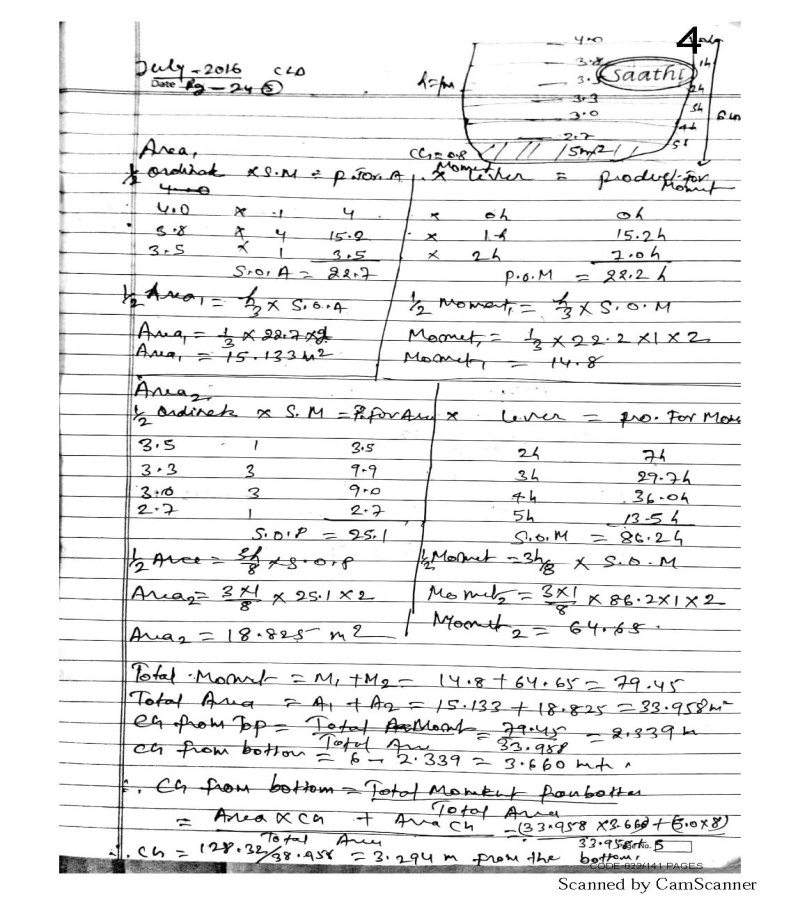 4
July - 2016 CLD
Date Pg - 24 ⑤
saathi
h = 1m
4.0
3.8
3.5
3.3
3.0
2.7
oh
1h
2h
3h
4h
5h
6m
CG = 0.8
5m2
Area,
½ ordinate × S.M = P.For.A × lever = product For Moment
4.0 × 1 4 × oh oh
3.8 × 4 15.2 × 1h 15.2h
3.5 × 1 3.5 × 2h 7.0h
S.O.A = 22.7 P.O.M = 22.2 h
½ Area₁ = h/3 × S.O.A ½ Moment₁ = h/3 × S.O.M
Area₁ = 1/3 × 22.7 × 2 Moment₁ = 1/3 × 22.2 × 1 × 2
Area₁ = 15.133 m² Moment₁ = 14.8
Area₂
½ ordinate × S.M = P.for Area × Lever = pro. For Mom
3.5 1 3.5 2h 7h
3.3 3 9.9 3h 29.7h
3.0 3 9.0 4h 36.0h
2.7 1 2.7 5h 13.5h
S.O.P = 25.1 S.O.M = 86.2h
½ Area = 3h/8 × S.O.P ½ Moment = 3h/8 × S.O.M
Area₂ = 3×1/8 × 25.1 × 2 Moment₂ = 3×1/8 × 86.2 × 1 × 2
Area₂ = 18.825 m2 Moment₂ = 64.65.
Total Moment = M₁ + M₂ = 14.8 + 64.65 = 79.45
Total Area = A₁ + A₂ = 15.133 + 18.825 = 33.958 m²
CG from Top = Total Moment / Total Area = 79.45 / 33.958 = 2.339 m
CG from bottom = 6 - 2.339 = 3.660 mt
∴ CG from bottom = Total Moment from bottom / Total Area
= Area × CG + Area CG / Total Area = (33.958 × 3.660 + (5.0×8) / 33.958 + 5
∴ CG = 128.32/38.958 = 3.294 m from the bottom.
CODE-822/141 PAGES
Scanned by CamScanner